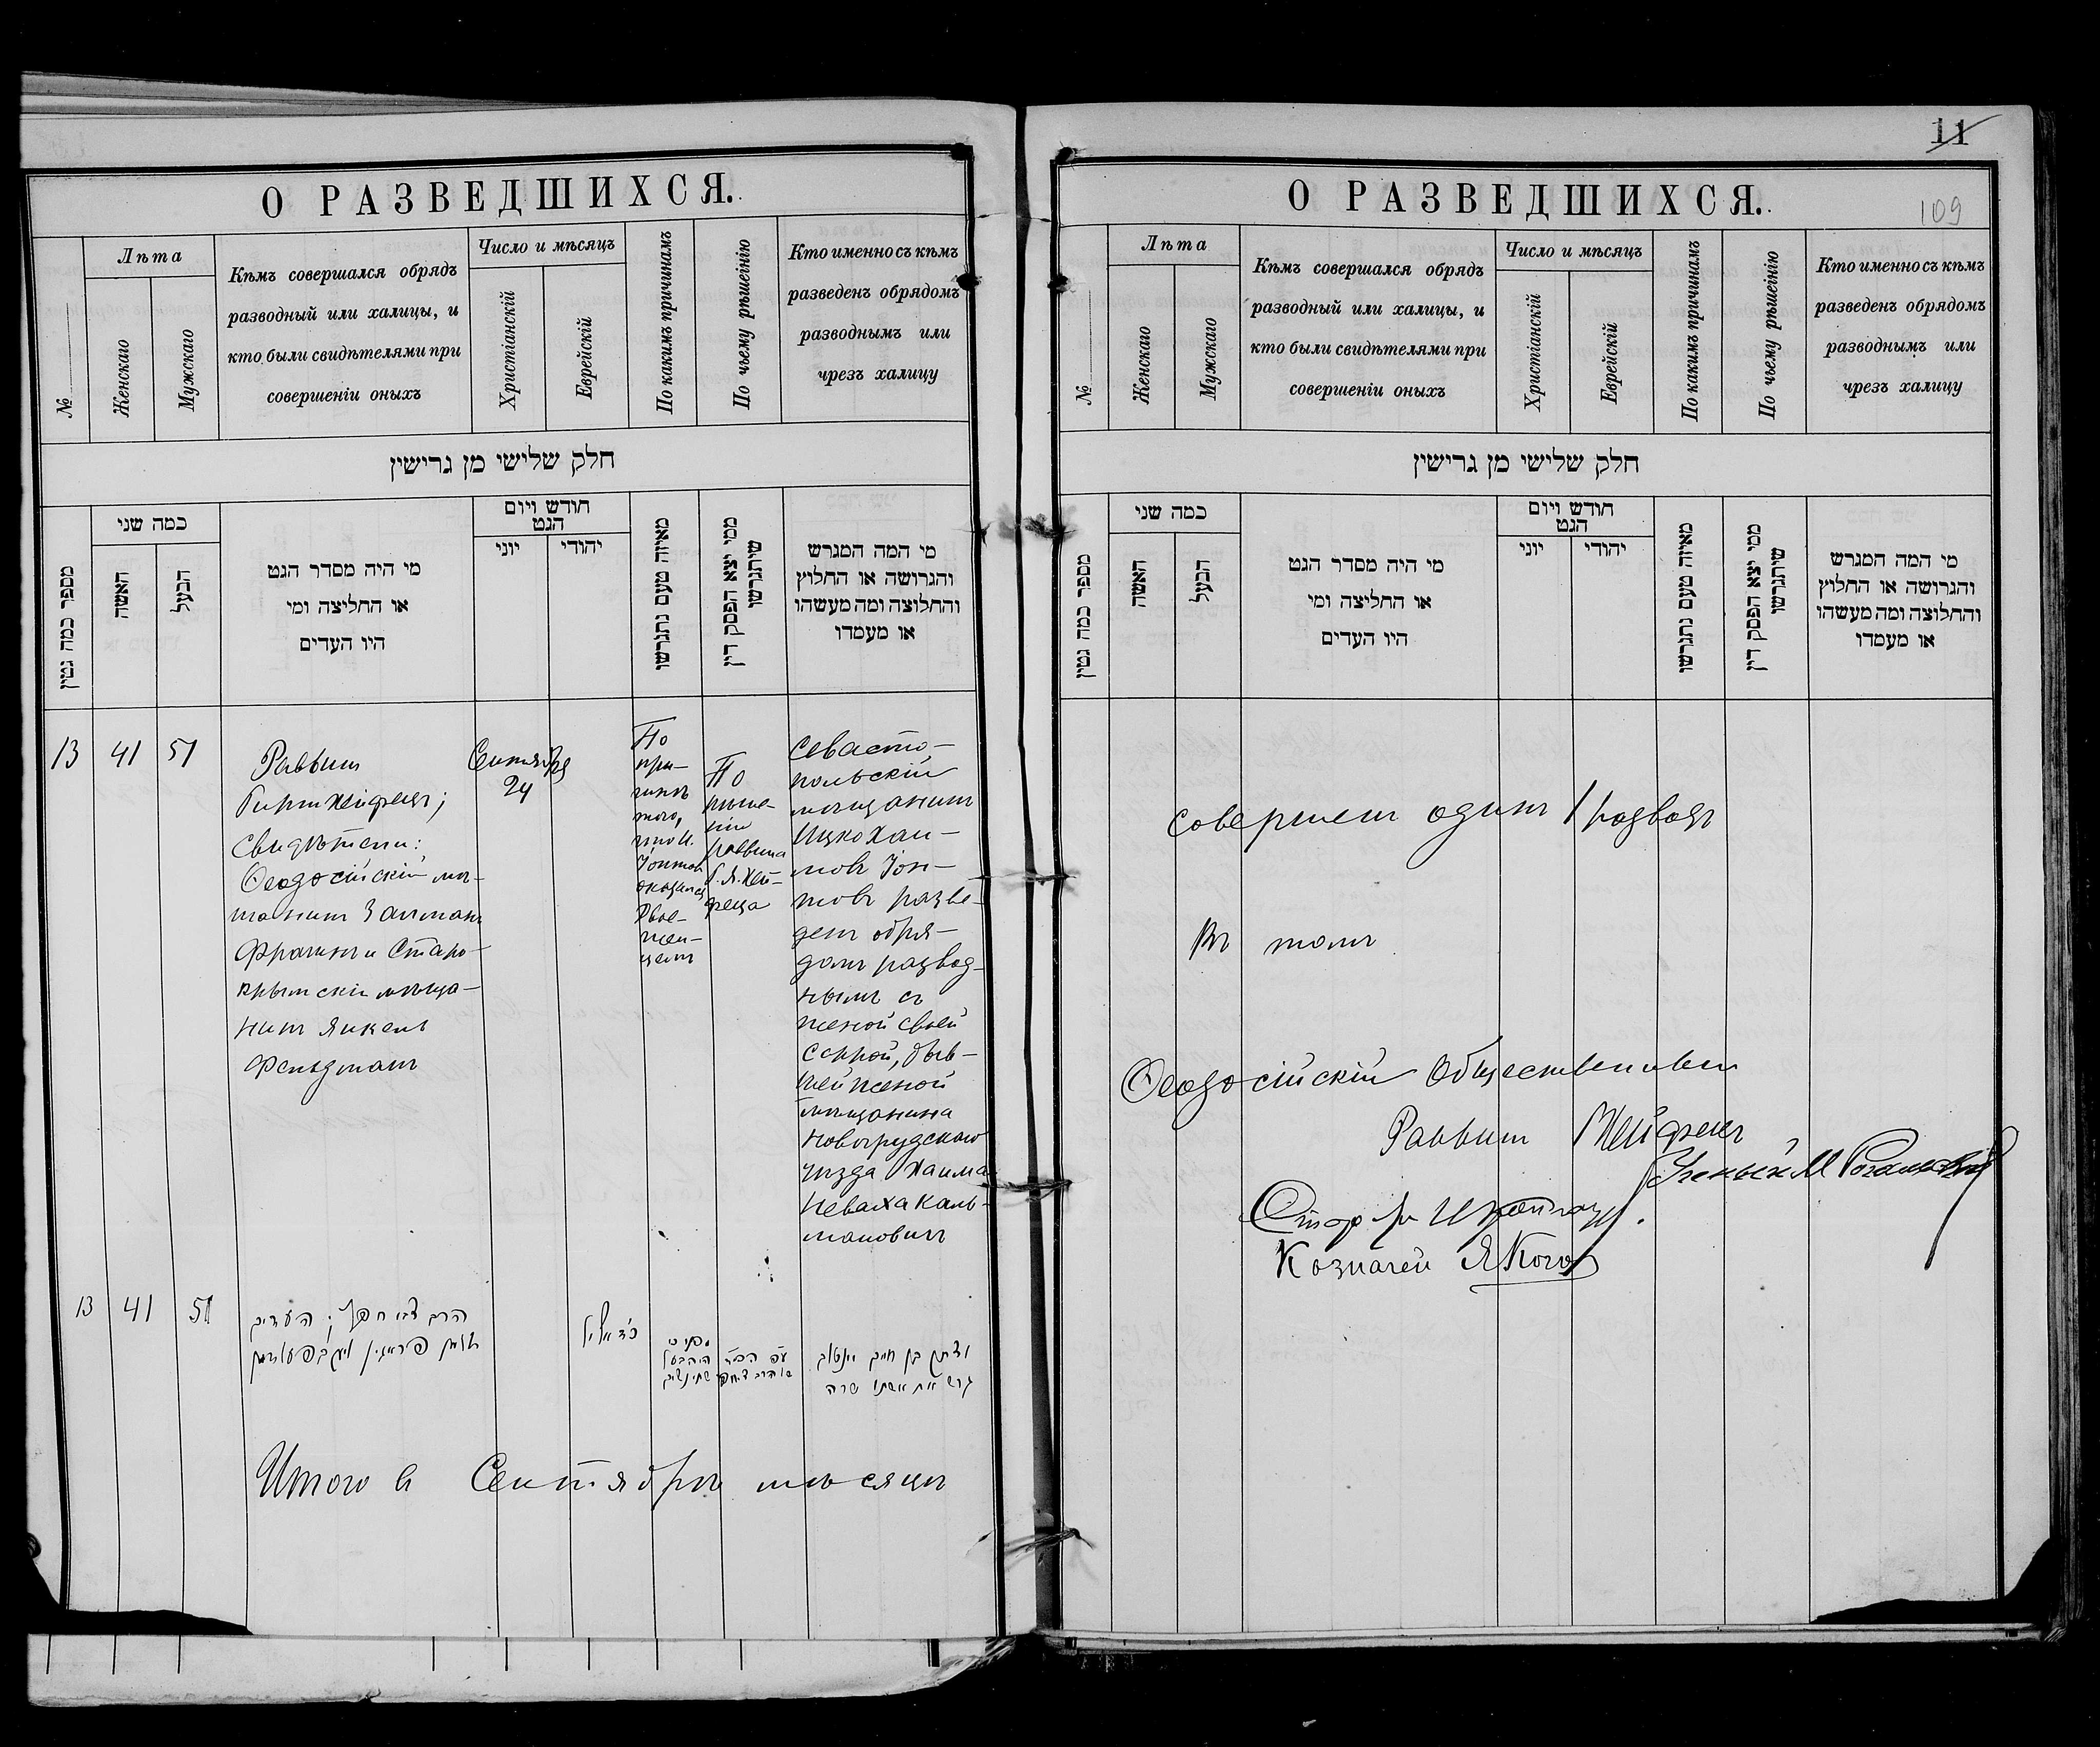 О РАЗВЕДШИХСЯ.
№
Лѣта
Женскаго
Мужскаго
Кѣмъ совершался обрядъ
разводный или халицы, и
кто были свидѣтелями при
совершеніи оныхъ
Число и мѣсяцъ
Христіанскій
Еврейскій
По какимъ причинамъ
По чьему рѣшенію
Кто именно съ кѣмъ
разведенъ обрядомъ
разводнымъ или
чрезъ халицу
חלק שלישי מן גרישין
מספר כמה גטין
כמה שני
האשה
הבעל
מי היה מסדר הגט
או החליצה ומי
היו העדים
חודש ויום
הגט
יוני
יהודי
מאיזה טעם נתגרשו
ממי יצא הפסק דין
שיתגרשו
מי המה המגרש
והגרושה או החלוץ
והחלוצה ומה מעשהו
או מעמדו
13 41 51
Раввинъ
Гирш Хейфецъ;
Свидѣтели:
Ѳеодосійскій мѣ-
щанинъ Залманъ
Фрагинъ и Старо-
крымскій мѣща-
нинъ Янкель
Фельдманъ
Сентября
24
По
при-
чинѣ
того,
что И.
Іонтовъ
оказался
двое-
жен-
цемъ
По
рѣше-
нію
раввина
Г. Я. Хей-
феца
Севасто-
польскій
мѣщанинъ
Ицко Хаи-
мовъ Іон-
товъ разве-
денъ обря-
домъ развод-
нымъ съ
женой своей
Саррой, быв-
шей женой
мѣщанина
Новогрудскаго
уѣзда Хаима
Неваха Каль-
мановичъ
13 41 51
הרב צבי חפץ; העדים
זלמן פראגין ויעקב פעלדמאן
כ"ד אלול
מפני כי
היה בעל
שתי נשים
ע"פ הרב
יצחק בן חיים יונטוב
גרש את אשתו שרה
Итого въ Сентябрѣ мѣсяцѣ
11
109
О РАЗВЕДШИХСЯ.
№
Лѣта
Женскаго
Мужскаго
Кѣмъ совершался обрядъ
разводный или халицы, и
кто были свидѣтелями при
совершеніи оныхъ
Число и мѣсяцъ
Христіанскій
Еврейскій
По какимъ причинамъ
По чьему рѣшенію
Кто именно съ кѣмъ
разведенъ обрядомъ
разводнымъ или
чрезъ халицу
חלק שלישי מן גרישין
מספר כמה גטין
כמה שני
האשה
הבעל
מי היה מסדר הגט
או החליצה ומי
היו העדים
חודש ויום
הגט
יוני
יהודי
מאיזה טעם נתגרשו
ממי יצא הפסק דין
שיתגרשו
מי המה המגרש
והגרושה או החלוץ
והחלוצה ומה מעשהו
או מעמדו
совершенъ одинъ 1 разводъ
Въ томъ
Ѳеодосійскій Общественный
Раввинъ Хейфецъ
Ученый М
Казначей Я Коген